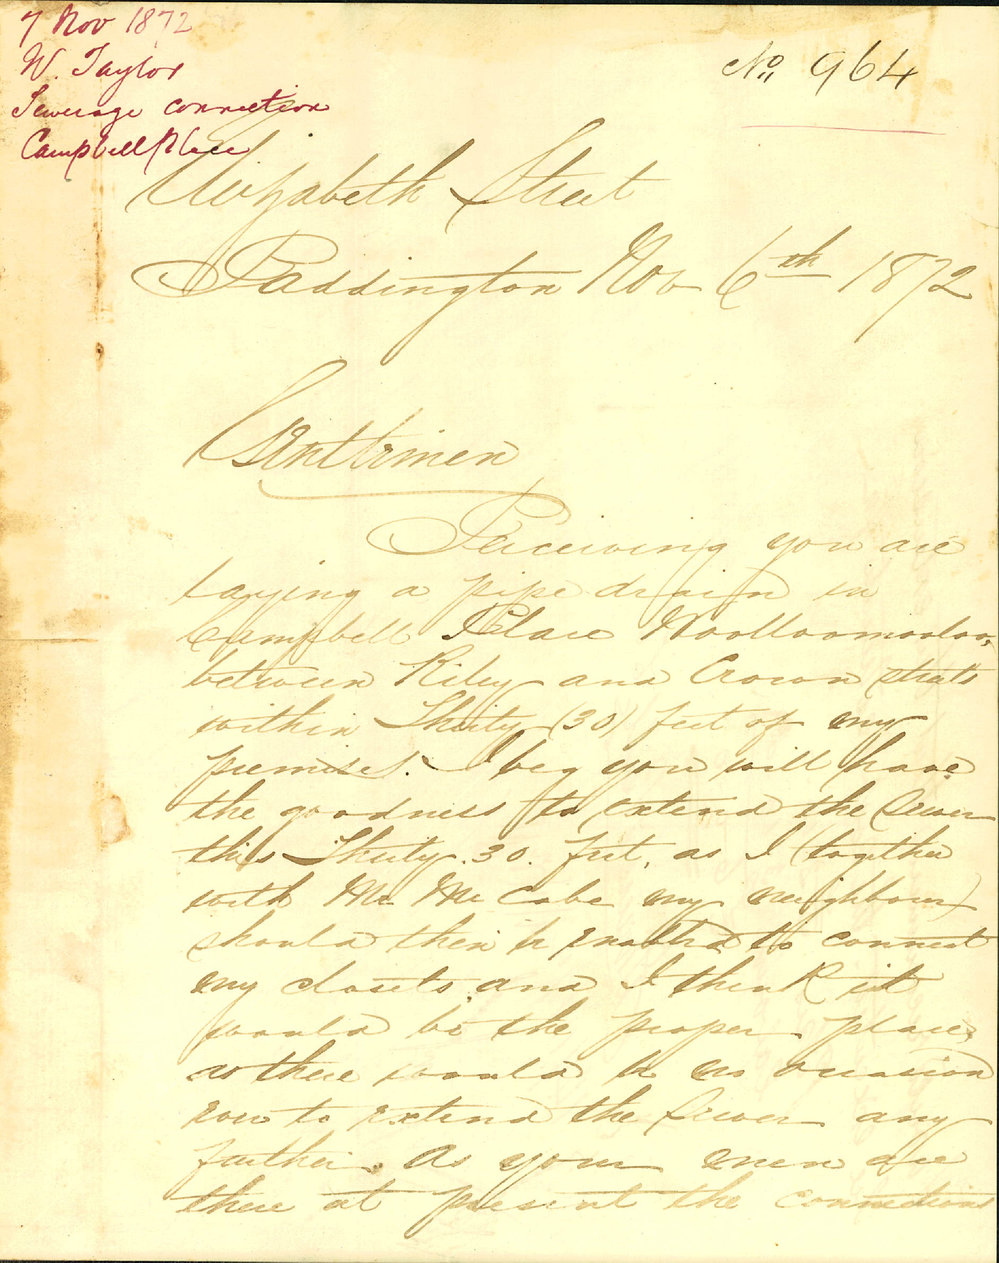 7 Nov 1872
W. Taylor
Sewerage connection
Campbell Place
No 964
Elizabeth Street
Paddington Nov 6th 1872
Gentlemen
Perceiving you are
laying a pipe drain in
Campbell Place Woolloomooloo,
between Riley and Crown streets
within Thirty (30) feet of my
premises. I beg you will have
the goodness to extend the Sewer
this Thirty .30. feet, as I (together
with Mr. McCabe my neighbour)
should then be enabled to connect
my closets, and I think it
would be the proper place,
as there would be no occasion
to extend the Sewer any
further. As your men are
there at present the connections